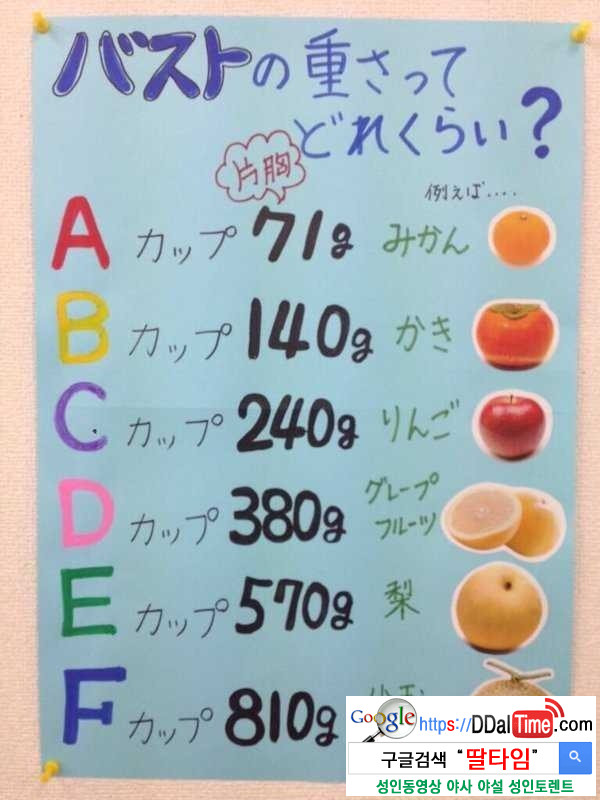 バストの重さって
どれくらい?
片胸
例えば....
A カップ 71g みかん
B カップ 140g かき
C カップ 240g りんご
D カップ 380g グレープ
フルーツ
E カップ 570g 梨
F カップ 810g 小玉
Google https://DDalTime.com
구글검색 “딸타임”
성인동영상 야사 야설 성인토렌트